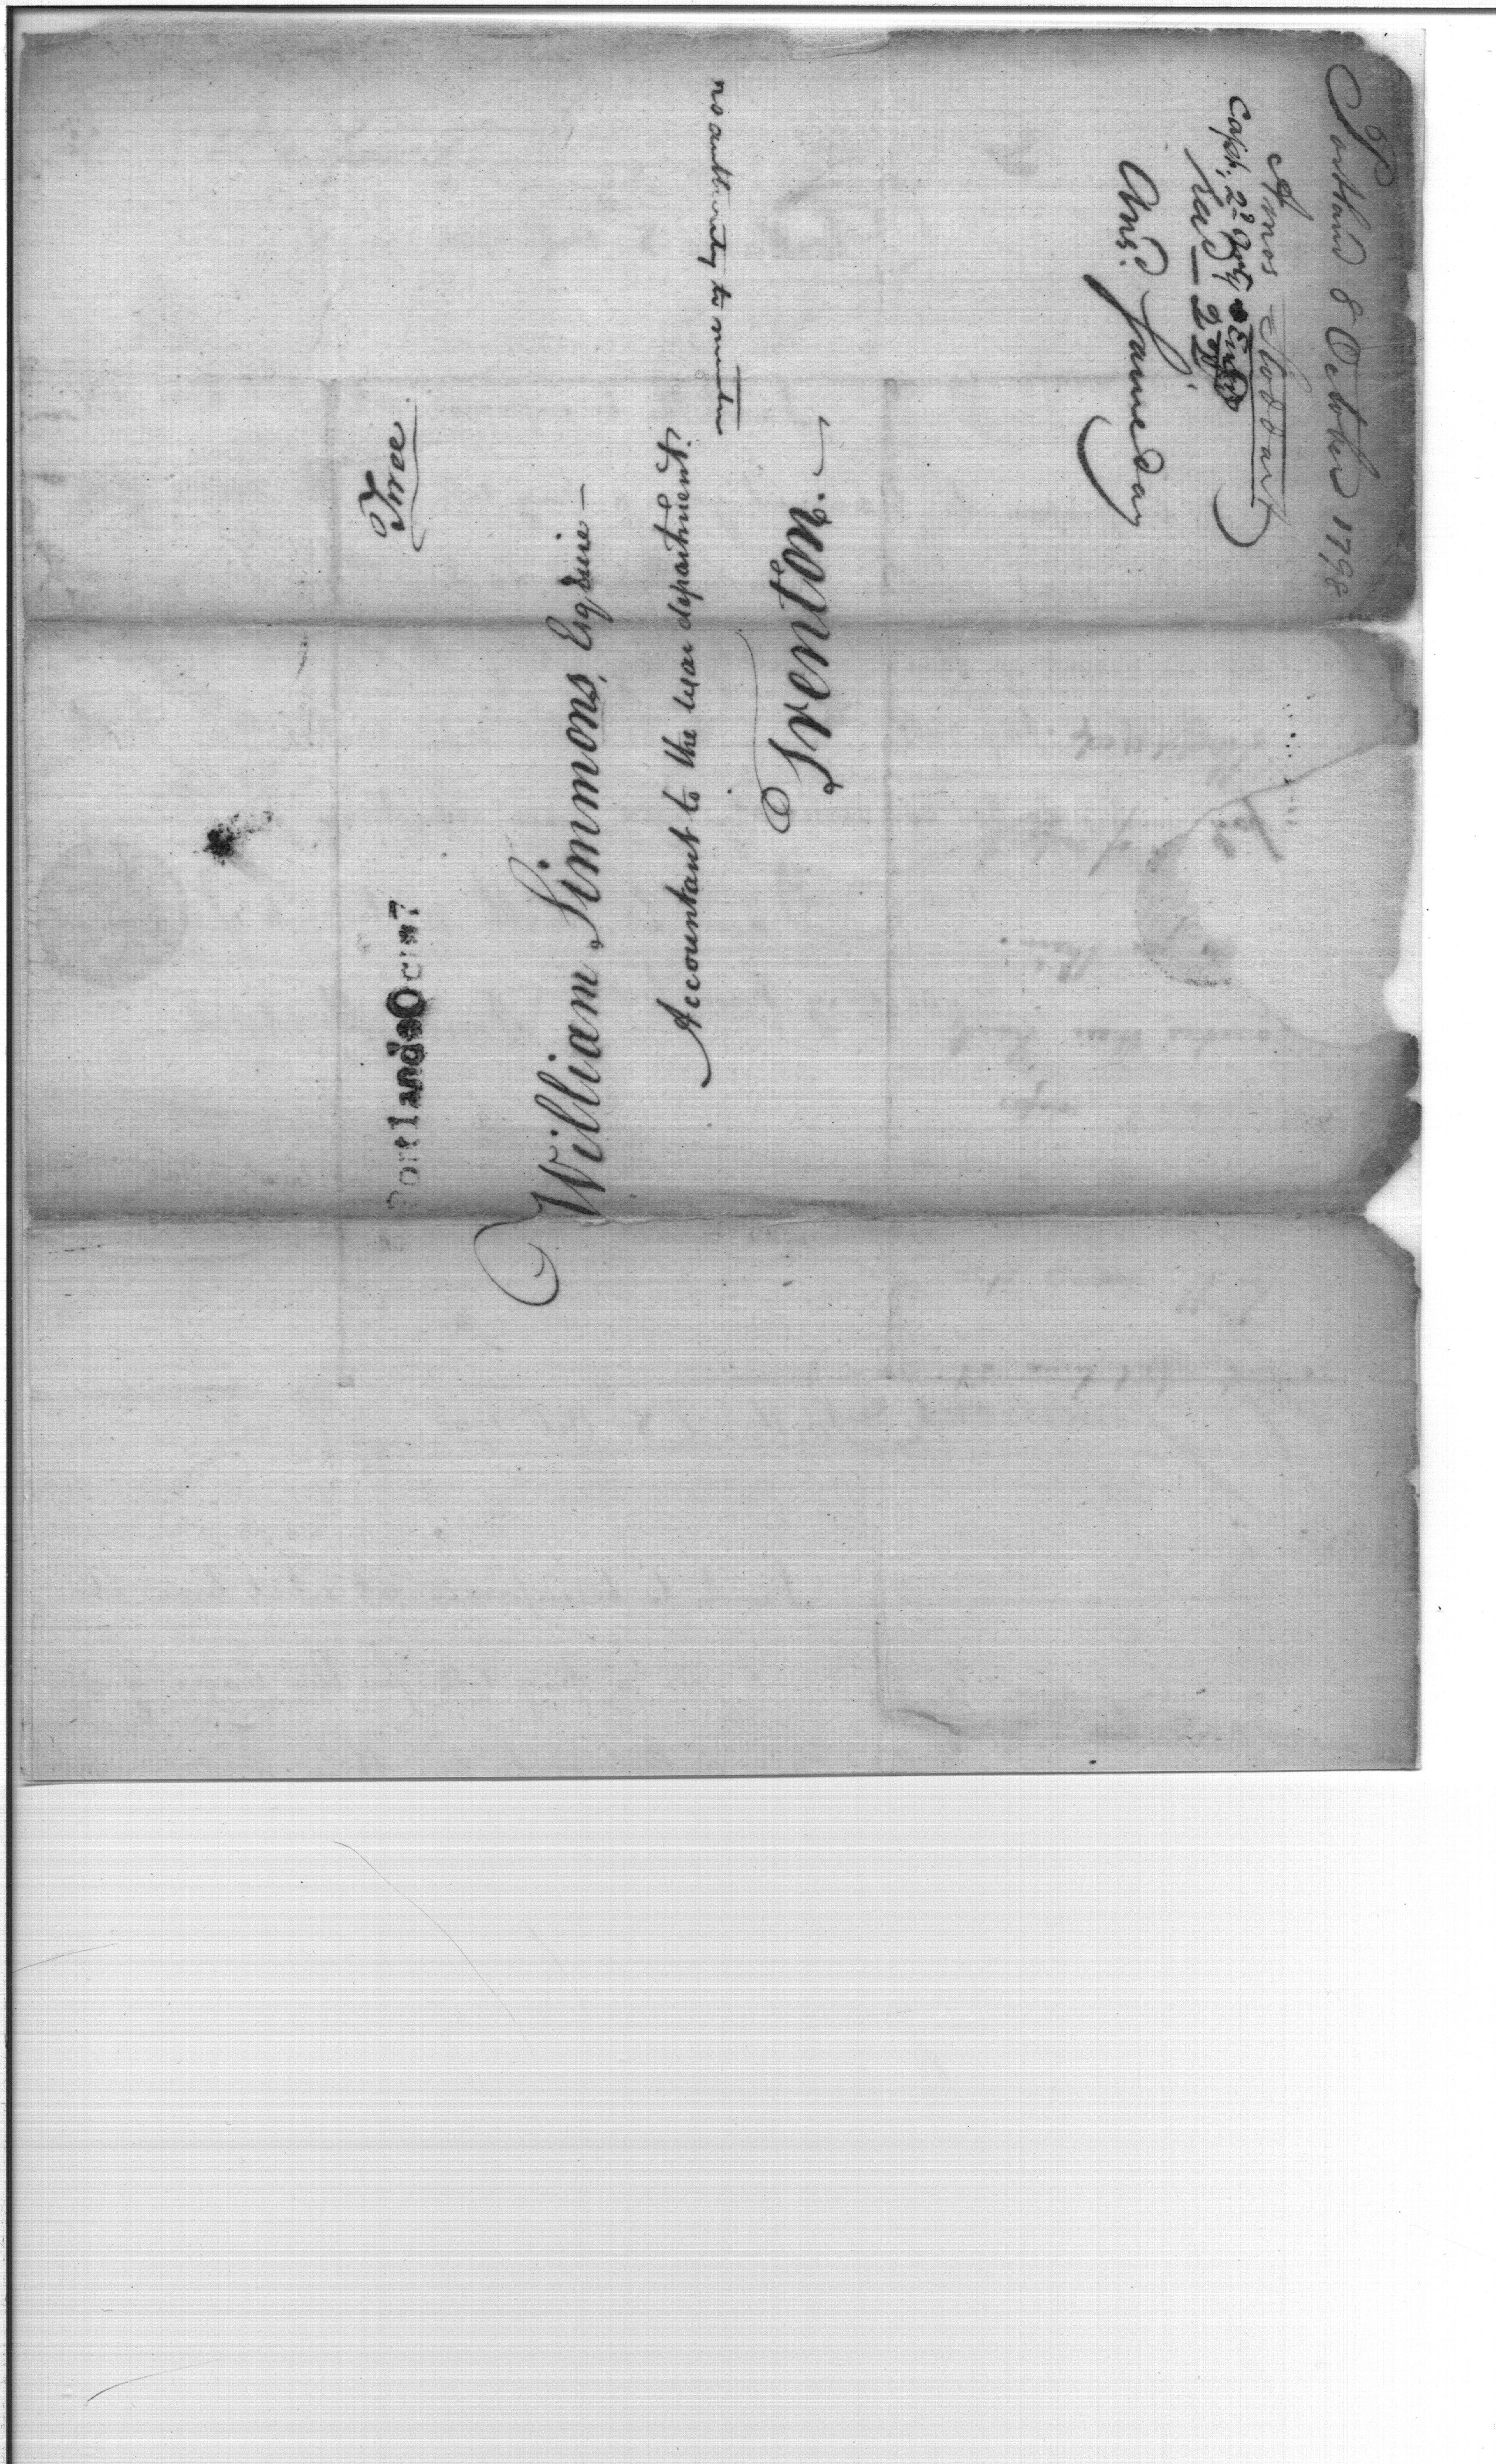 Portland 8 October 1798
Amos Stoddart
Capt. 2d Regt
Recd 22d
Ansd. same day
Free
William Simmons, Esquire —
Accountant to the war department.
Trenton. —
no authority to muster